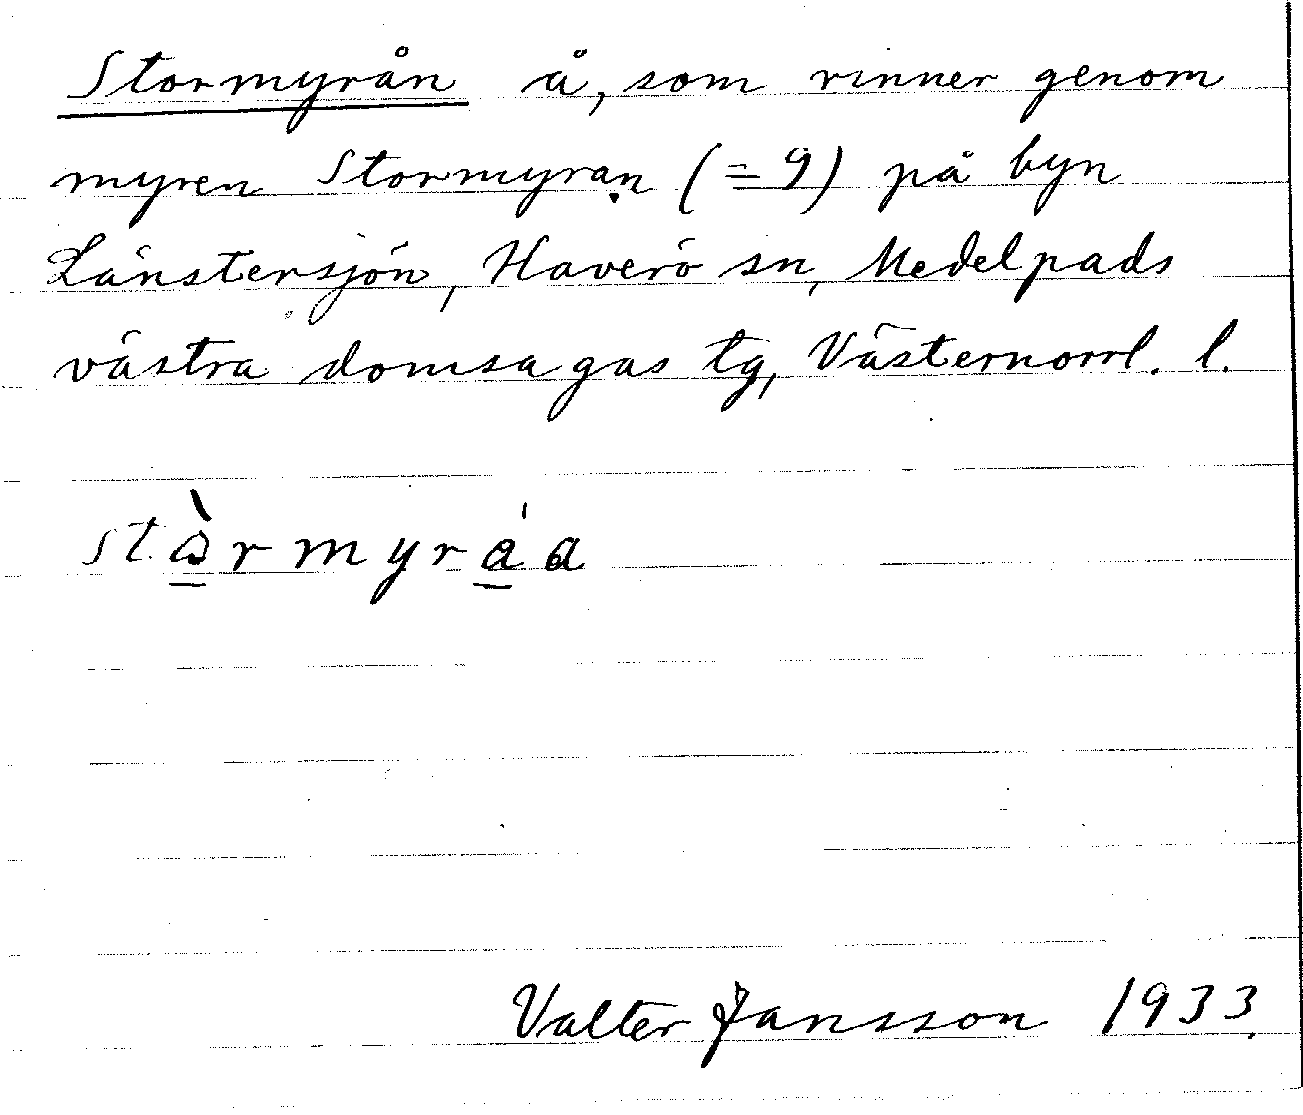 Stormyrån å, som rinner genom
myren Stormyran (=9) på byn
Länstersjön, Haverö sn, Medelpads
västra domsagas tg, Västernorrl. l.
Valter Jansson 1933.